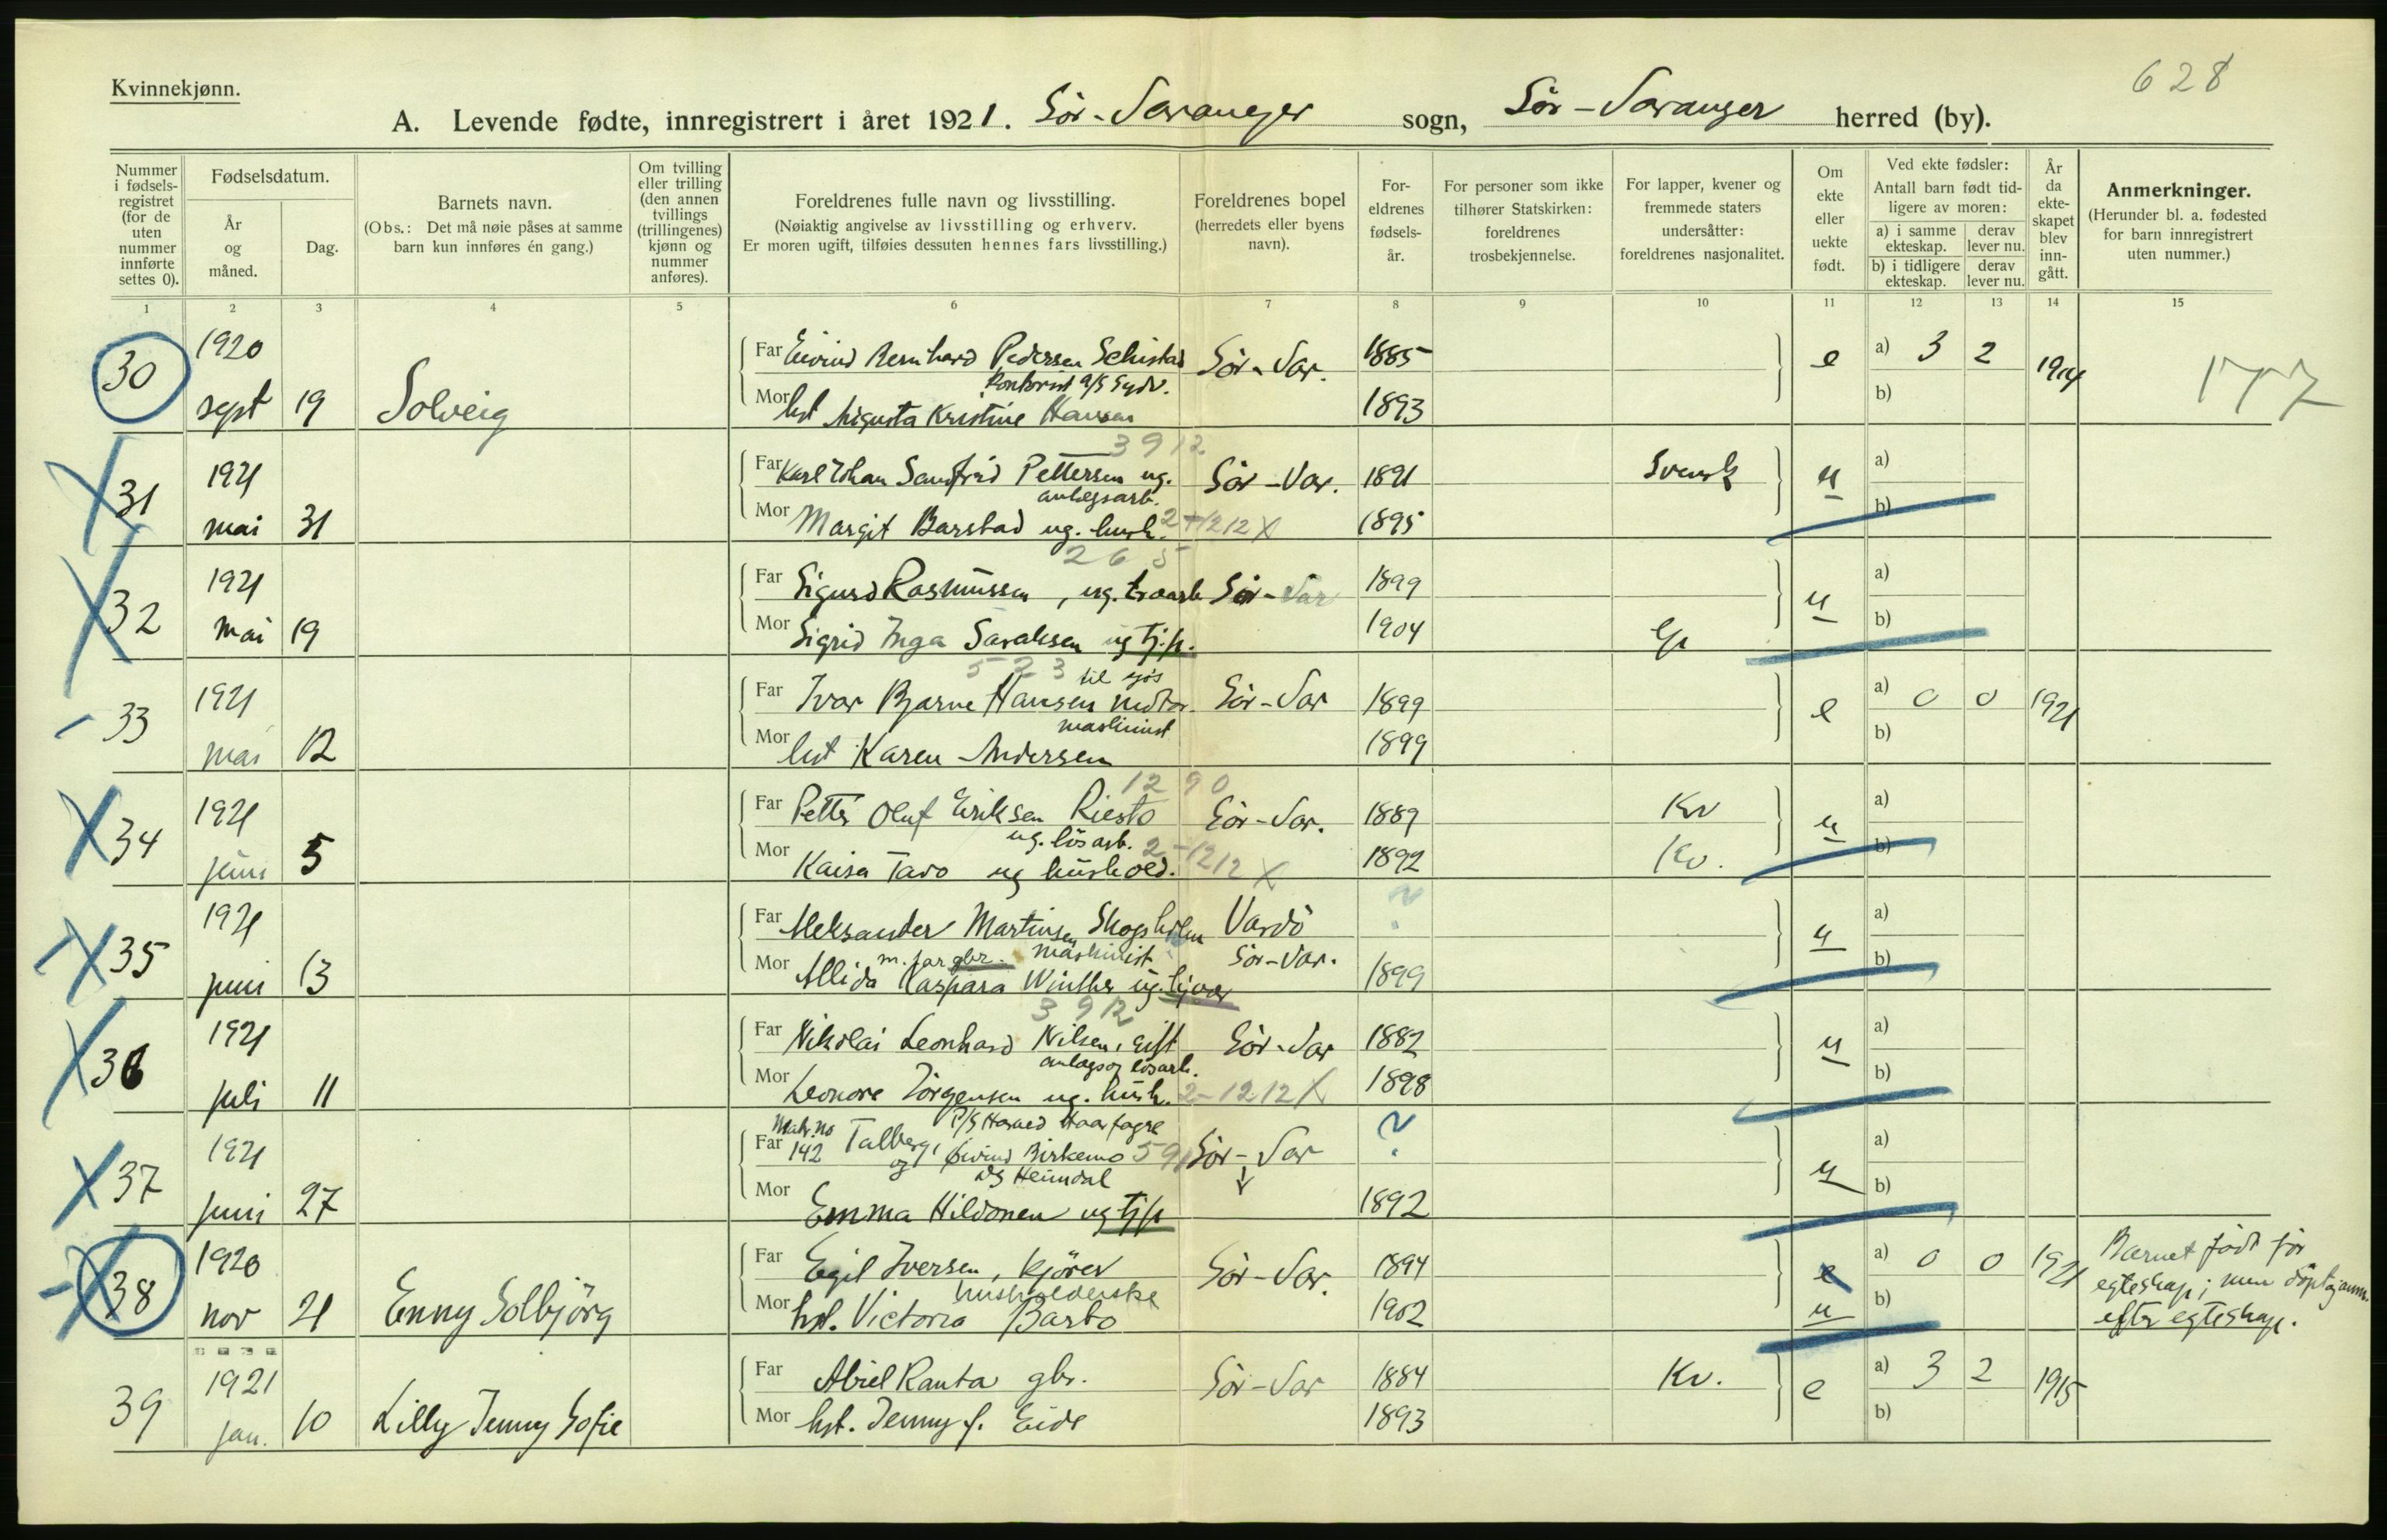 Kvinnekjønn.
628
A. Levende fødte, innregistrert i året 1921. Sør-Varanger sogn, Sør-Varanger herred (by).
Nummer i fødsels-registret (for de uten nummer innførte settes 0).
Fødselsdatum.
År og måned.
Dag.
Barnets navn.
(Obs.: Det må nøie påses at samme barn kun innføres én gang.)
Om tvilling eller trilling (den annen tvillings (trillingenes) kjønn og nummer anføres).
Foreldrenes fulle navn og livsstilling.
(Nøiaktig angivelse av livsstilling og erhverv.
Er moren ugift, tilføies dessuten hennes fars livsstilling.)
Foreldrenes bopel
(herredets eller byens navn).
For-eldrenes fødsels-år.
For personer som ikke tilhører Statskirken: foreldrenes trosbekjennelse.
For lapper, kvener og fremmede staters undersåtter: foreldrenes nasjonalitet.
Om ekte eller uekte født.
Ved ekte fødsler:
Antall barn født tid-ligere av moren:
a) i samme ekteskap.
derav lever nu.
b) i tidligere ekteskap.
derav lever nu.
År da ekte-skapet blev inn-gått.
Anmerkninger.
(Herunder bl. a. fødested for barn innregistrert uten nummer.)
1 2 3 4 5 6 7 8 9 10 11 12 13 14 15
30 1920 sept 19 Solveig
Far Eivind Bernhard Pedersen Schistad Sör-Var. 1885 e a) 3 2 1914 177
kontorist A/S Sydv.
Mor hst Augusta Kristine Hansen 1893 b)
3912
31 1921 mai 31
Far Karl Johan Sanfrid Pettersen ug. Sör-Var. 1891 Svensk u a)
anlegsarb.
Mor Margit Barstad ug. hush. 2-1212 X 1895 b)
265
32 1921 mai 19
Far Sigurd Rasmussen, ug. Sör-Var 1899 u a)
Mor Sigrid Inga ug tj.p. 1904 b)
523 til sjös
33 1921 mai 12
Far Ivar Bjarne Hansen Sör-Var 1899 e a) 0 0 1921
maskinist
Mor hst Karen Andersen 1899 b)
1290
34 1921 juni 5
Far Petter Oluf Eriksen Riesto Sör-Var. 1889 Kv u a)
ug. lösarb.
Mor Kaisa Tavo ug hushold. 2-1212 X 1892 Kv. b)
35 1921 juni 13
Far Aleksander Martinsen Skogsholm Vardö ? u a)
m. far gbr. maskinist Sör-Var.
Mor Allida Kaspara Winther ug. 1899 b)
3912
36 1921 juli 11
Far Nikolai Leonhard Nilsen, gift Sör-Var 1882 u a)
anlægs og lösarb.
Mor Leonore Jörgensen ug. hush. 2-1212 X 1898 b)
37 1921 juni 27
Matr. no D/S Harald Haarfagre
Far 142 Talberg, og Eivind Birkemo 591 Sör-Var ? u a)
D/S Heimdal
Mor Emma Hildonen ug tjp 1892 b)
38 1920 nov 21 Enny Solbjörg
Far Egil Iversen, kjörer Sör-Var. 1894 e a) 0 0 1921 Barnet födt för
husholderske egteskap; men döpt og anm.
Mor hst. Victoria Barbo 1902 u b) efter egteskap.
39 1921 jan. 10 Lilly Jenny Sofie
Far Abiel Ranta gbr. Sör-Var 1884 Kv. e a) 3 2 1915
Mor hst. Jenny f. Eide 1893 b)